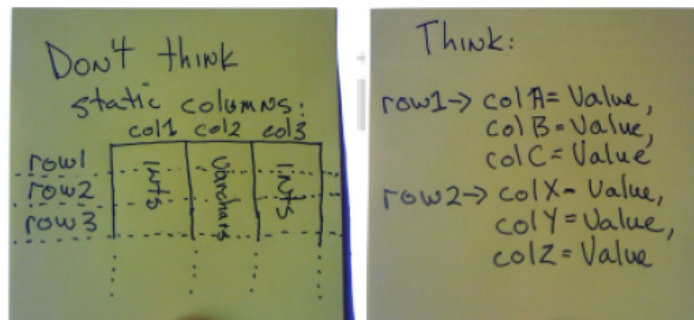 Don't think
static columns:
col1 col2 col3
row1
row2
row3
Ints
Varchars
Ints
Think:
row1→ colA= Value,
colB=Value,
colC= Value
row2→ colX= Value,
colY=Value,
colZ=Value